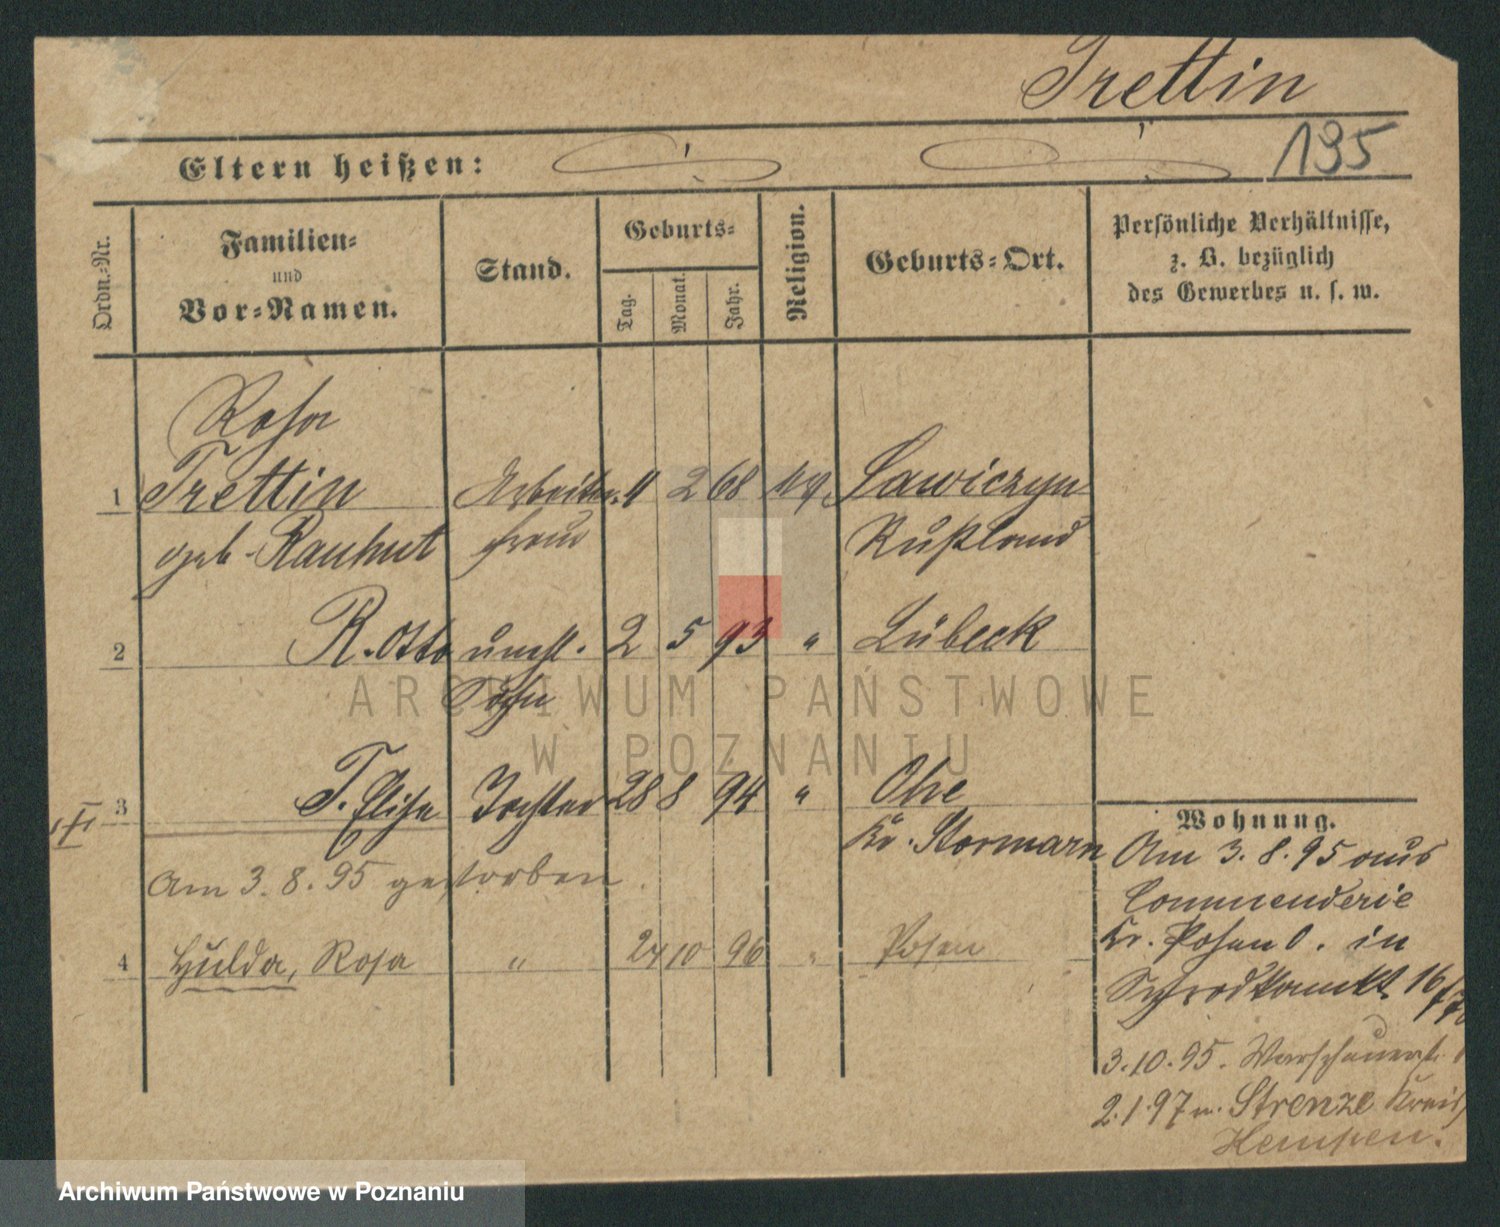 Trettin
195
Eltern heißen:
Ordn.-Nr.
Familien-
und
Vor-Namen.
Stand.
Geburts-
Tag.
Monat.
Jahr.
Religion.
Geburts-Ort.
Persönliche Verhältnisse,
z. B. bezüglich
des Gewerbes u. s. w.
Rosa
1 Trettin Arbeiter 11 2 68 ev. Sawiczyn
geb. Rauhut frau Rußland
2 R. Otto unehl. 2 5 93 " Lübeck
Sohn
3 T. Elise Tochter 28 8 94 " Ohe
Kr. Stormarn
Am 3.8.95 gestorben.
4 Hulda, Rosa " 24 10 96 " Posen
Wohnung.
Am 3.8.95 aus
Commenderie
Kr. Posen O. in
Schrodkamkt 16
3.10.95. Warschauerst.
2.1.97 n. Strenze Kreis
Kempen.
ARCHIWUM PAŃSTWOWE
W POZNANIU
Archiwum Państwowe w Poznaniu